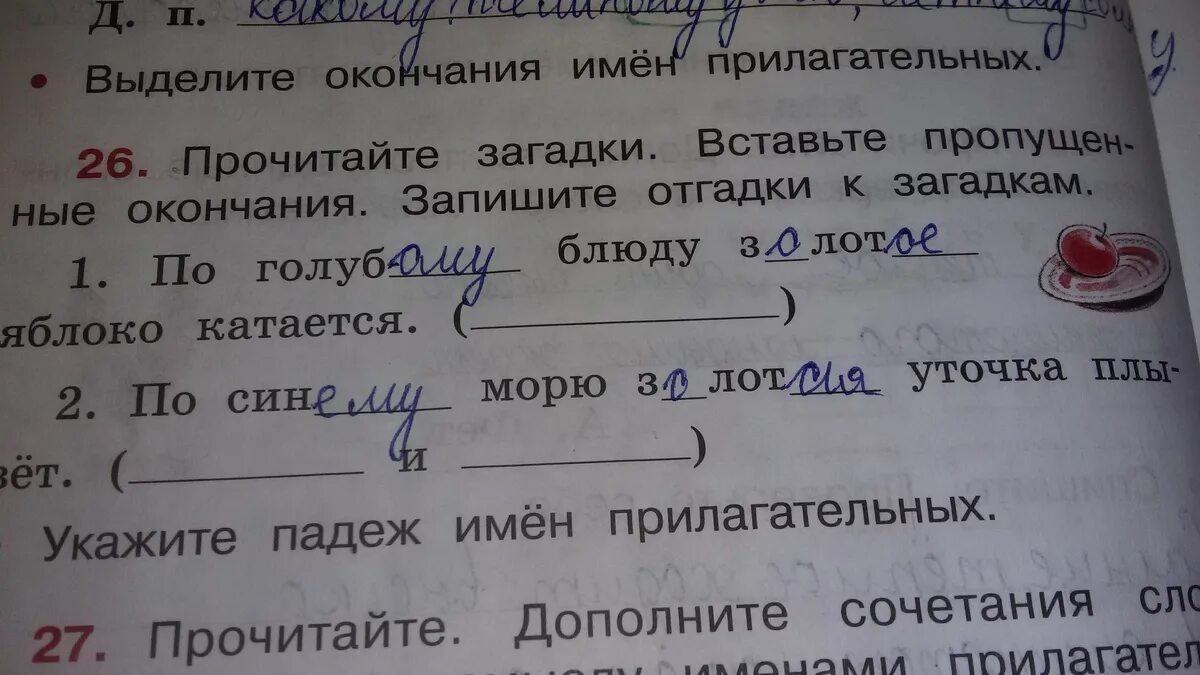 Д. п. какому? темному
• Выделите окончания имён прилагательных.
у
26. Прочитайте загадки. Вставьте пропущен-
ные окончания. Запишите отгадки к загадкам.
1. По голубому блюду золотое
яблоко катается. (____)
2. По синему морю золотая уточка плы-
вёт. (____ и ____)
Укажите падеж имён прилагательных.
27. Прочитайте. Дополните сочетания сло
именами прилагател